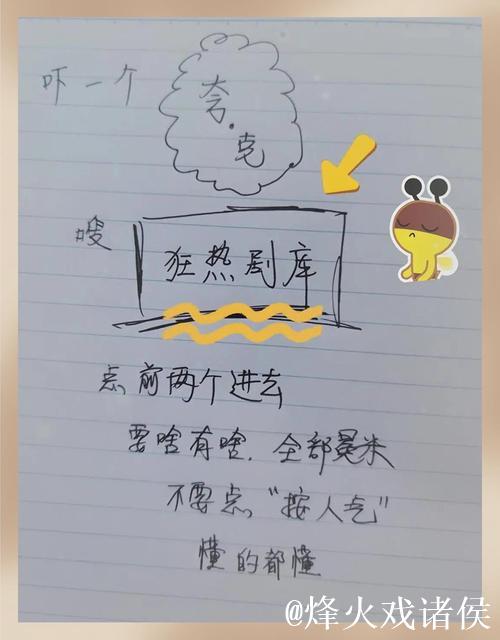 吓一个
夸.克
嗖
狂热剧库
点前两个进去
要啥有啥.全部冕米
不要点“按人气”
懂的都懂
@烽火戏诸侯